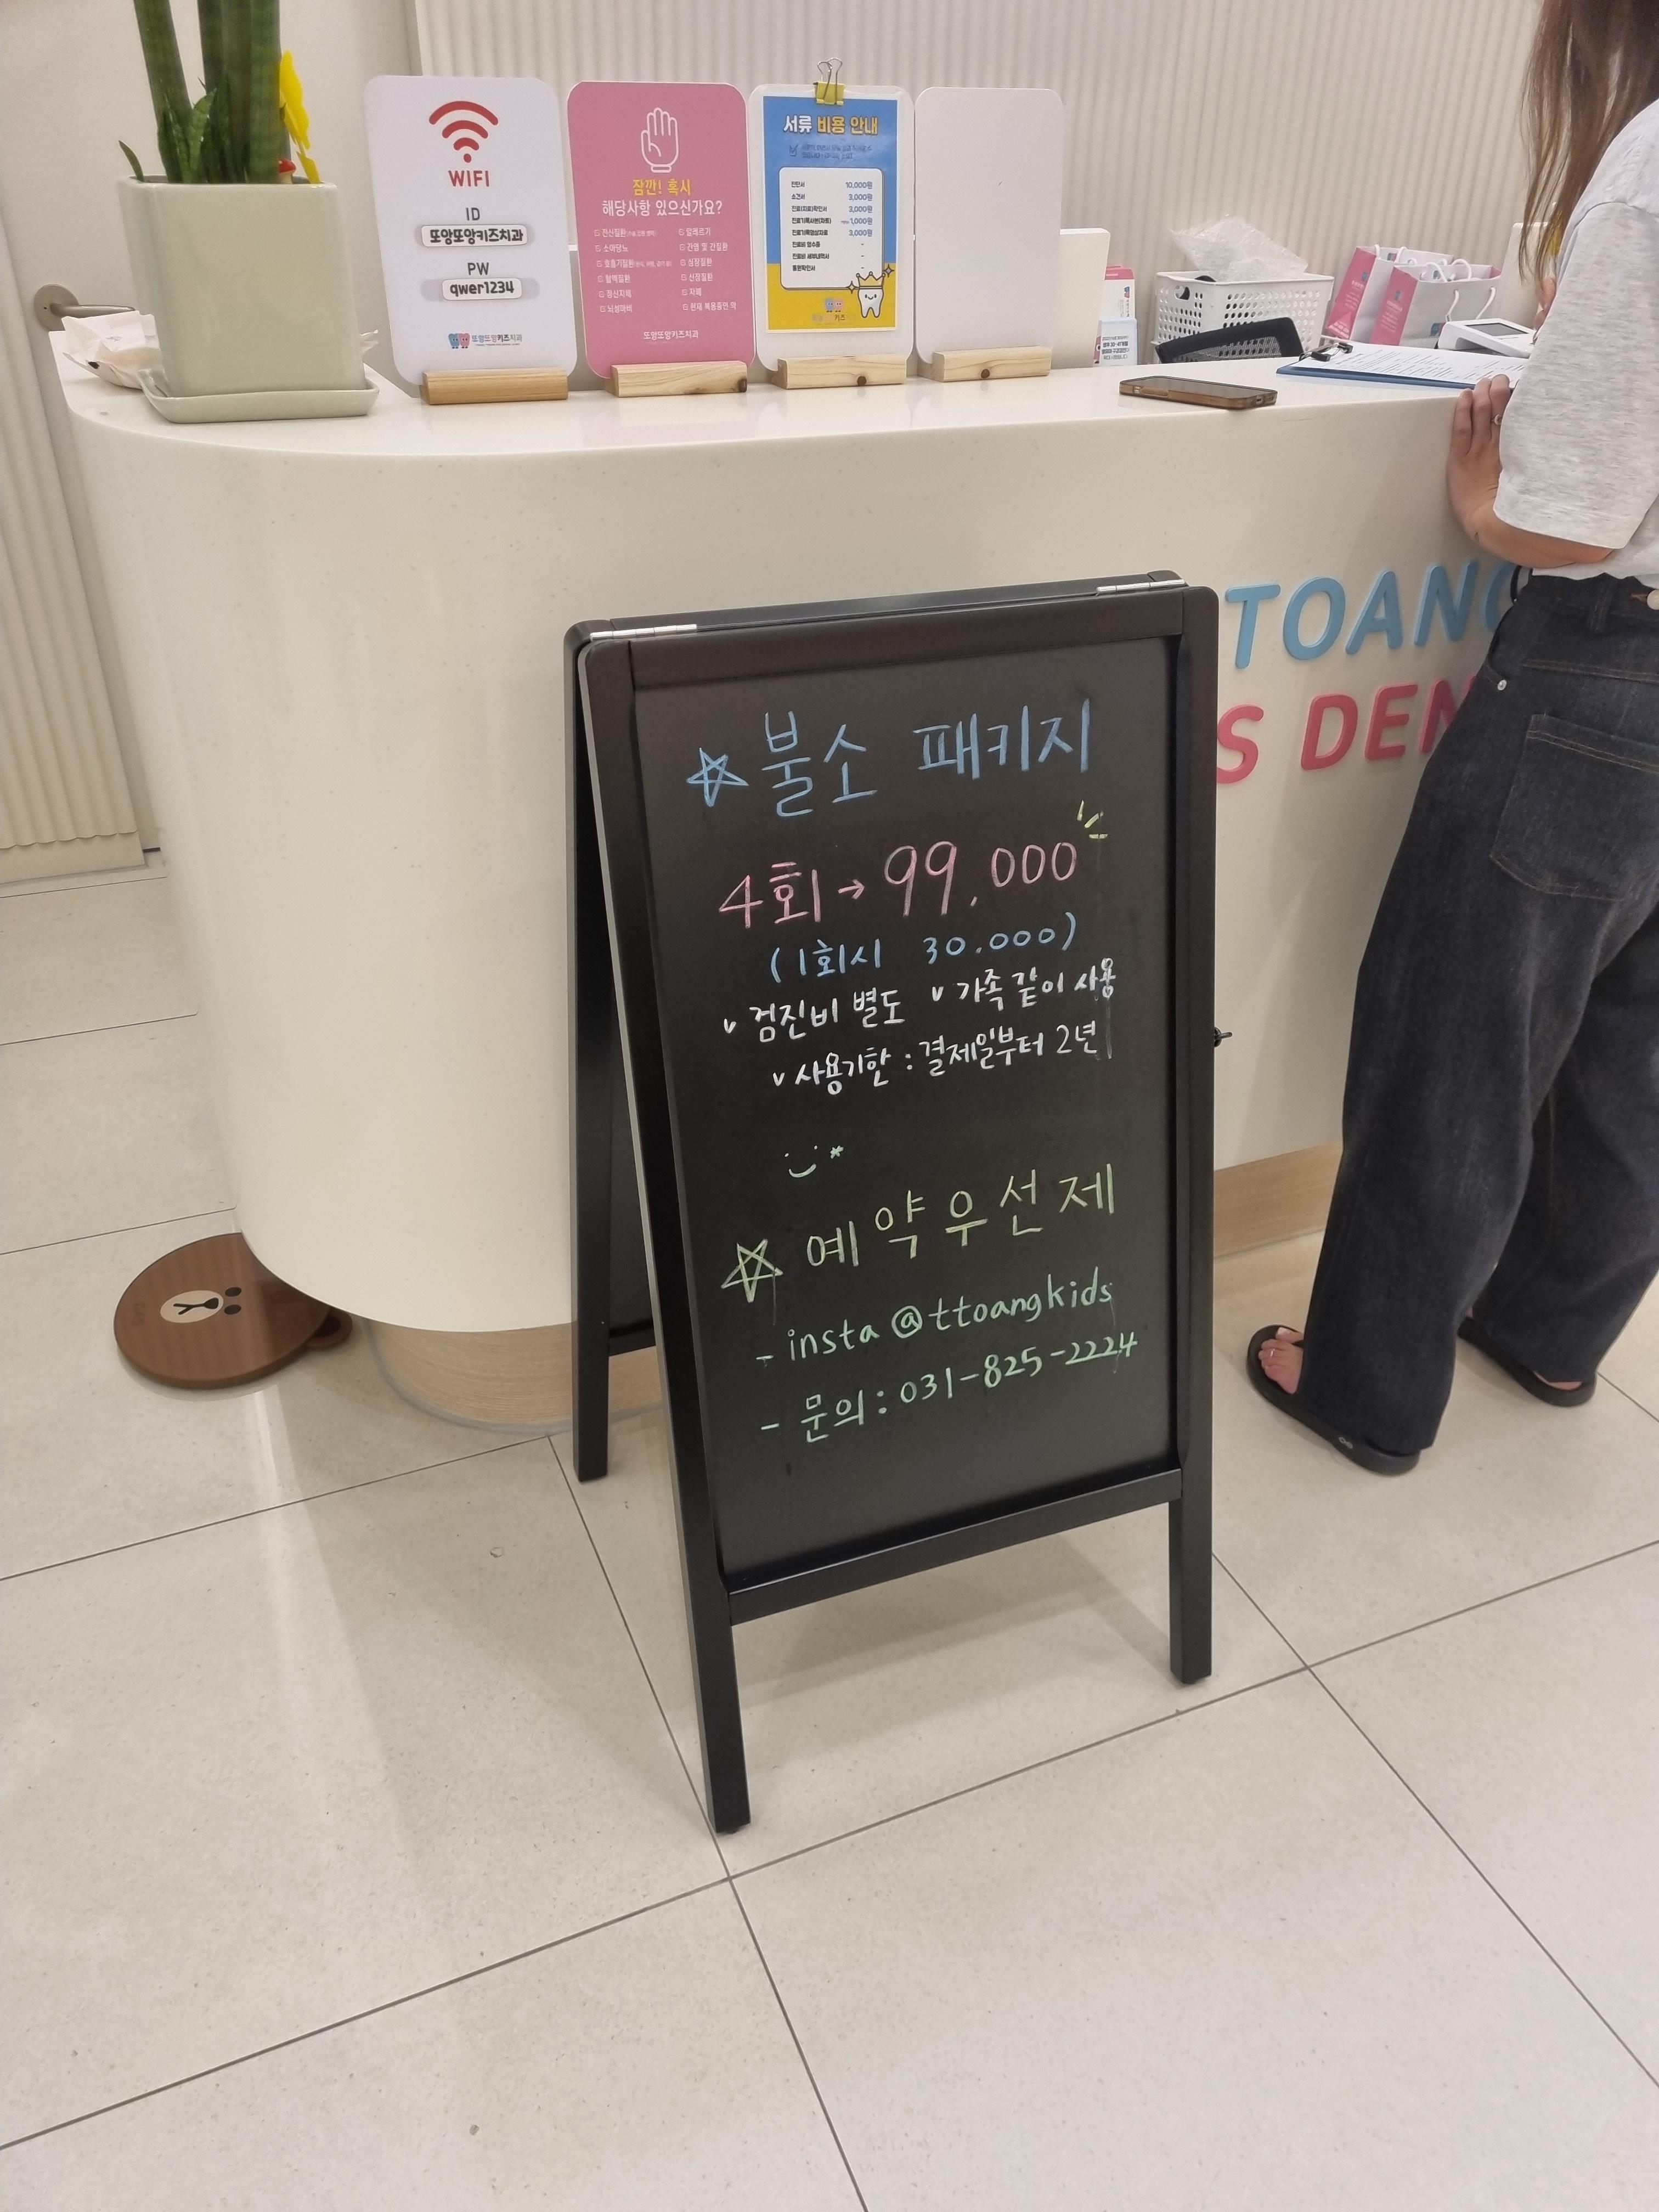 WIFI
ID
또앙또앙키즈치과
PW
qwer1234
또앙또앙키즈치과
잠깐! 혹시
해당사항 있으신가요?
전신질환
소아당뇨
호흡기질환
혈액질환
정신지체
뇌성마비
알레르기
간염 및 간질환
심장질환
신장질환
자폐
현재 복용중인 약
또앙또앙키즈치과
서류 비용 안내
진단서 10,000원
소견서 3,000원
진료(치료)확인서 3,000원
진료기록사본(차트) 1,000원
진료기록영상자료 3,000원
진료비 영수증 -
진료비 세부내역서 -
통원확인서 -
키즈
TOANG
S DEN
불소 패키지
4회→99,000
(1회시 30.000)
v 검진비 별도 v 가족같이 사용
v 사용기한 : 결제일부터 2년
예약우선제
- insta @ttoangkids
- 문의 : 031-825-2224